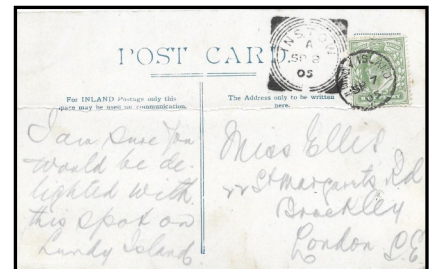 POST CARD
INSTOW
A
SP 8
05
LUNDY ISLAND
7
For INLAND Postage only this
space may be used for communication.
The Address only to be written
here.
I am sure you
would be de-
lighted with
this spot on
Lundy Island
Miss Ellis
22 St Margarets Rd
Brockley
London S.E